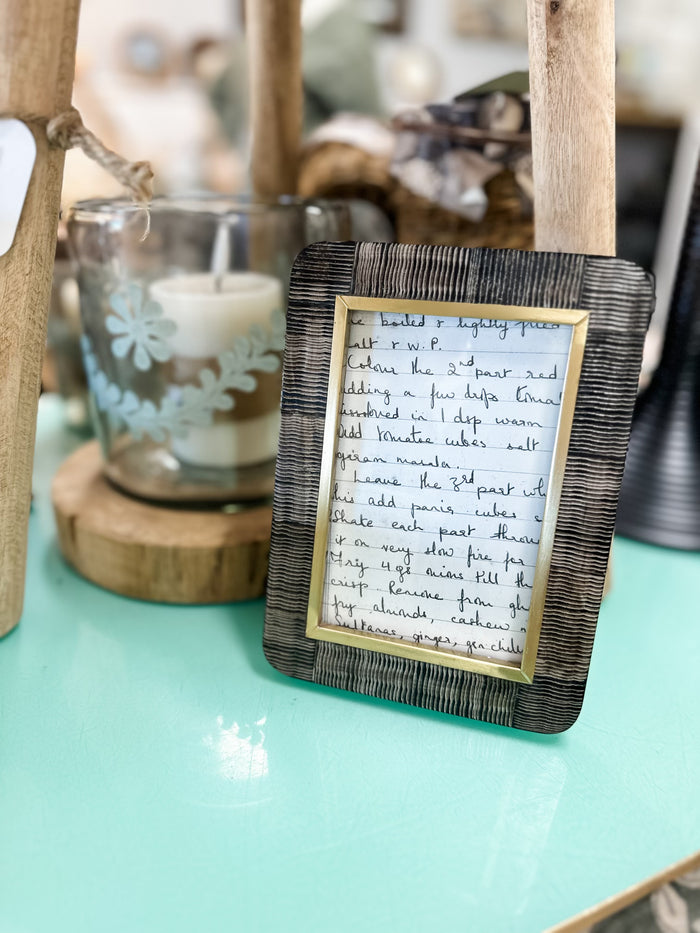 boiled & lightly fried
salt & W.P.
Colour the 2nd part red
adding a few drps toma
dissolved in 1 dsp warm
Add tomatoe cubes salt
garam masala.
Leave the 3rd part whi
this add panir cubes
Shake each part throu
it on very slow fire for
Fry 4 gs onins till th
crisp. Remove from gh
fry almonds, cashew
Sultanas, ginger, gen chile